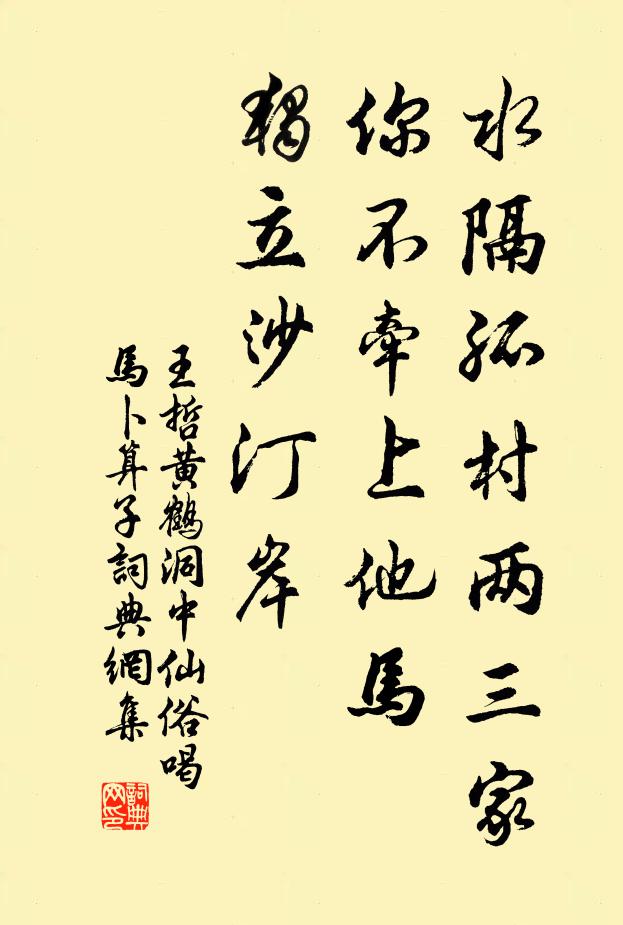 水隔孤村两三家
你不牽上他馬
獨立沙汀岸
王哲黄鶴洞中仙俗喝
馬卜算子詞典網集
詞典
网印